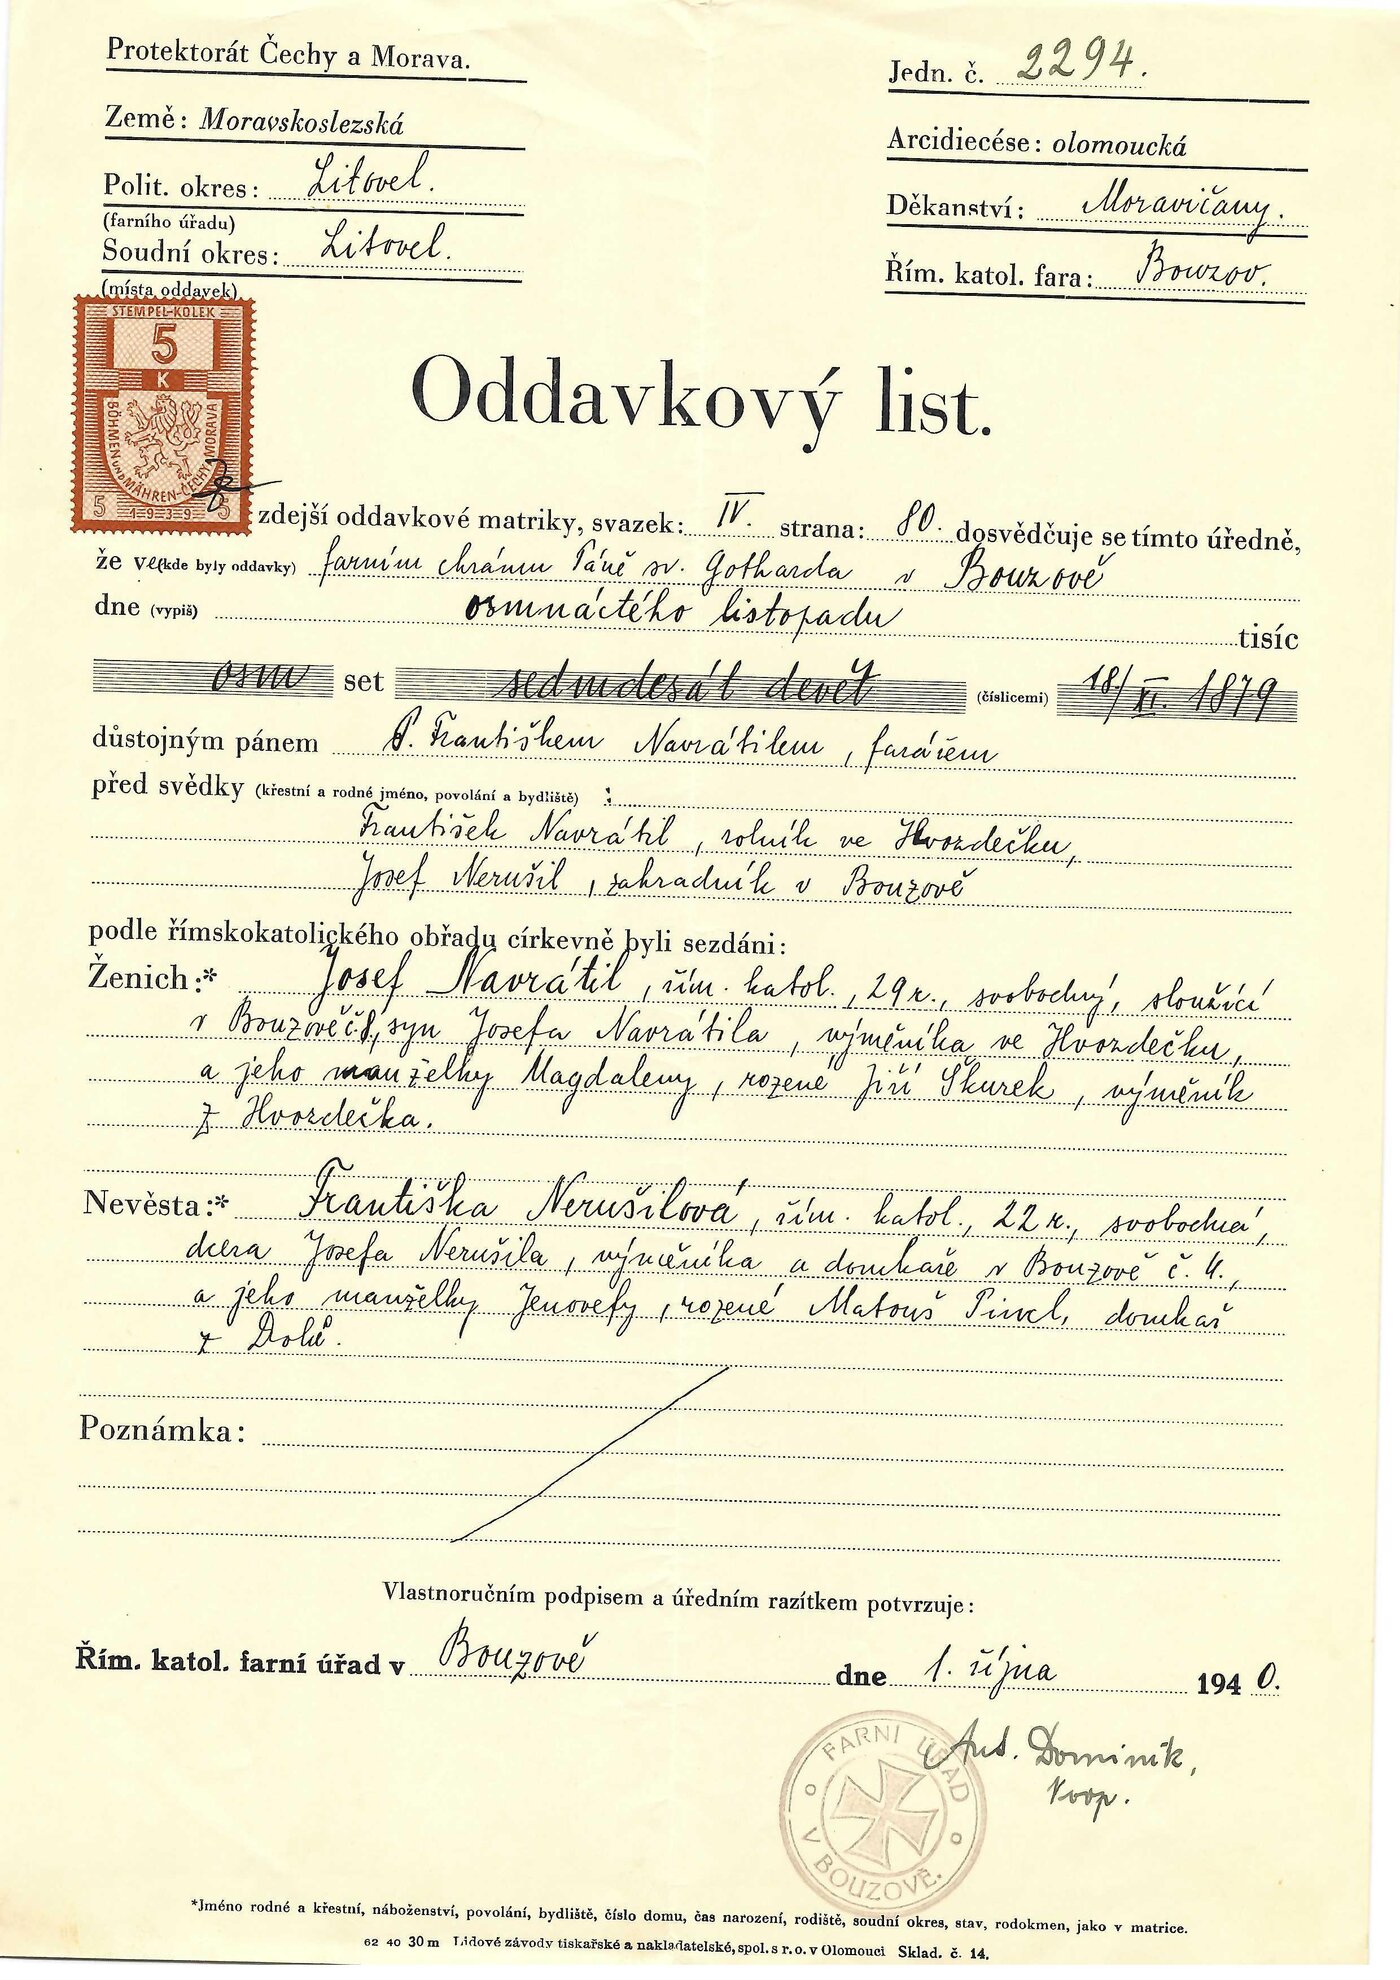 Protektorát Čechy a Morava.
Země: Moravskoslezská
Polit. okres: Litovel.
(farního úřadu)
Soudní okres: Litovel.
(místa oddavek)
Jedn. č. 2294.
Arcidiecése: olomoucká
Děkanství: Moravičany.
Řím. katol. fara: Bouzov.
STEMPEL-KOLEK
5
K
BÖHMEN UND MÄHREN-ČECHY MORAVA
5 1939 5
Oddavkový list.
zdejší oddavkové matriky, svazek: IV. strana: 80. dosvědčuje se tímto úředně,
že ve (kde byly oddavky) farním chrámu Páně sv. Gotharda v Bouzově
dne (vypiš) osmnáctého listopadu tisíc
osm set sedmdesát devět (číslicemi) 18./XI. 1879
důstojným pánem P. Františkem Navrátilem, farářem
před svědky (křestní a rodné jméno, povolání a bydliště) :
František Navrátil, rolník ve Hvozdečku,
Josef Nerušil, zahradník v Bouzově
podle římskokatolického obřadu církevně byli sezdáni:
Ženich:* Josef Navrátil, řím. katol., 29 r., svobodný, sloužící
v Bouzově č. 8, syn Josefa Navrátila, výměníka ve Hvozdečku,
a jeho manželky Magdaleny, rozené Jiří Škurek, výměník
z Hvozdečka.
Nevěsta:* Františka Nerušilová, řím. katol., 22 r., svobodná,
dcera Josefa Nerušila, výměníka a domkaře v Bouzově č. 4.,
a jeho manželky Jenovefy, rozené Matouš Pivel, domkař
z Dolů.
Poznámka:
Vlastnoručním podpisem a úředním razítkem potvrzuje:
Řím. katol. farní úřad v Bouzově dne 1. října 1940.
Ant. Dominik,
koop.
FARNÍ ÚŘAD
V BOUZOVĚ.
*Jméno rodné a křestní, náboženství, povolání, bydliště, číslo domu, čas narození, rodiště, soudní okres, stav, rodokmen, jako v matrice.
62 40 30 m Lidové závody tiskařské a nakladatelské, spol. s r. o. v Olomouci Sklad. č. 14.